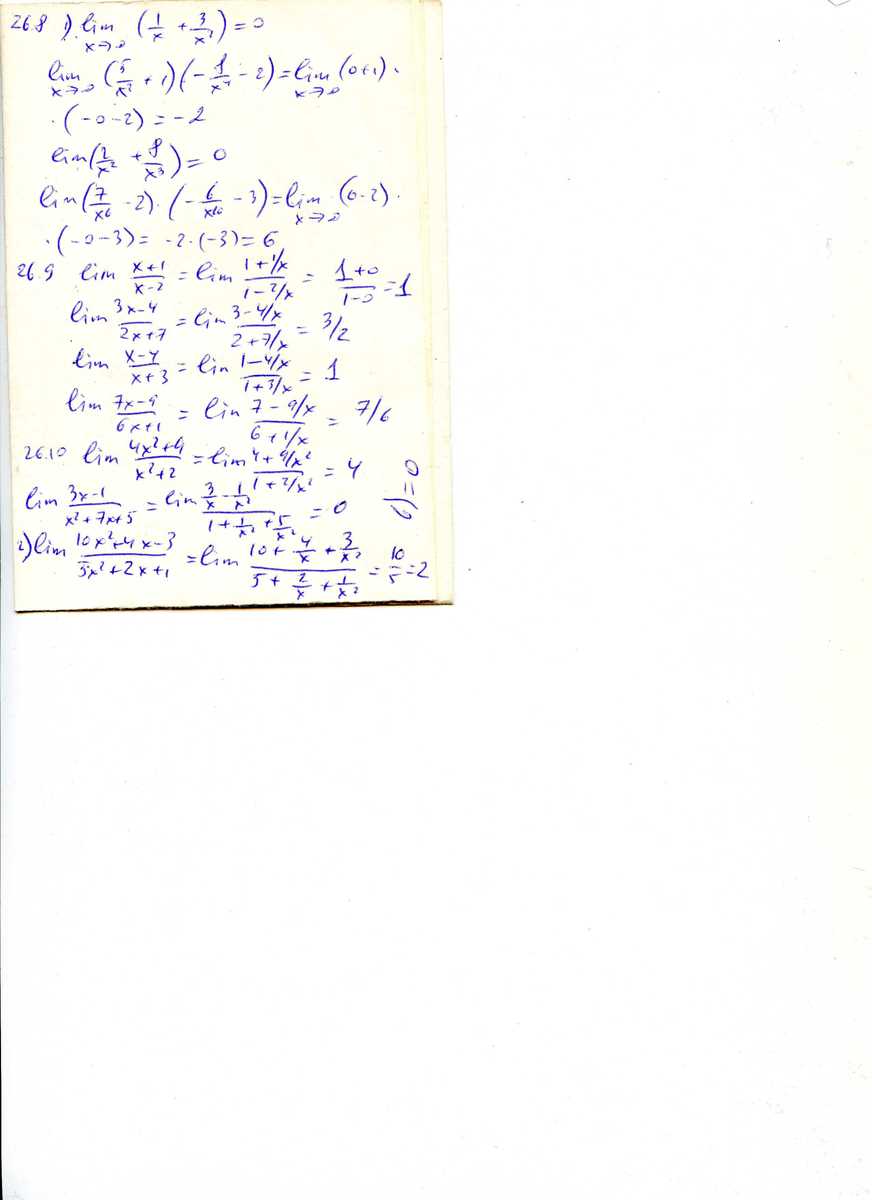 26.8 1) lim x→∞ (1/x + 3/x²) = 0
lim x→∞ (5/x² + 1)(-1/x - 2) = lim x→∞ (0+1)·
·(-0-2) = -2
lim (2/x² + 8/x³) = 0
lim (7/x⁶ - 2)·(-6/x¹⁰ - 3) = lim x→∞ (0-2)·
·(-0-3) = -2·(-3) = 6
26.9 lim x+1/x-2 = lim 1+1/x / 1-2/x = 1+0/1-0 = 1
lim 3x-4/2x+7 = lim 3-4/x / 2+7/x = 3/2
lim x-4/x+3 = lim 1-4/x / 1+3/x = 1
lim 7x-9/6x+1 = lim 7-9/x / 6+1/x = 7/6
26.10 lim 4x²+9/x²+2 = lim 4+9/x² / 1+2/x² = 4
lim 3x-1/x²+7x+5 = lim 3/x - 1/x² / 1 + 1/x² + 5/x² = 0
в) = 0
г) lim 10x²+4x-3/5x²+2x+1 = lim 10 + 4/x + 3/x² / 5 + 2/x + 1/x² = 10/5 = 2